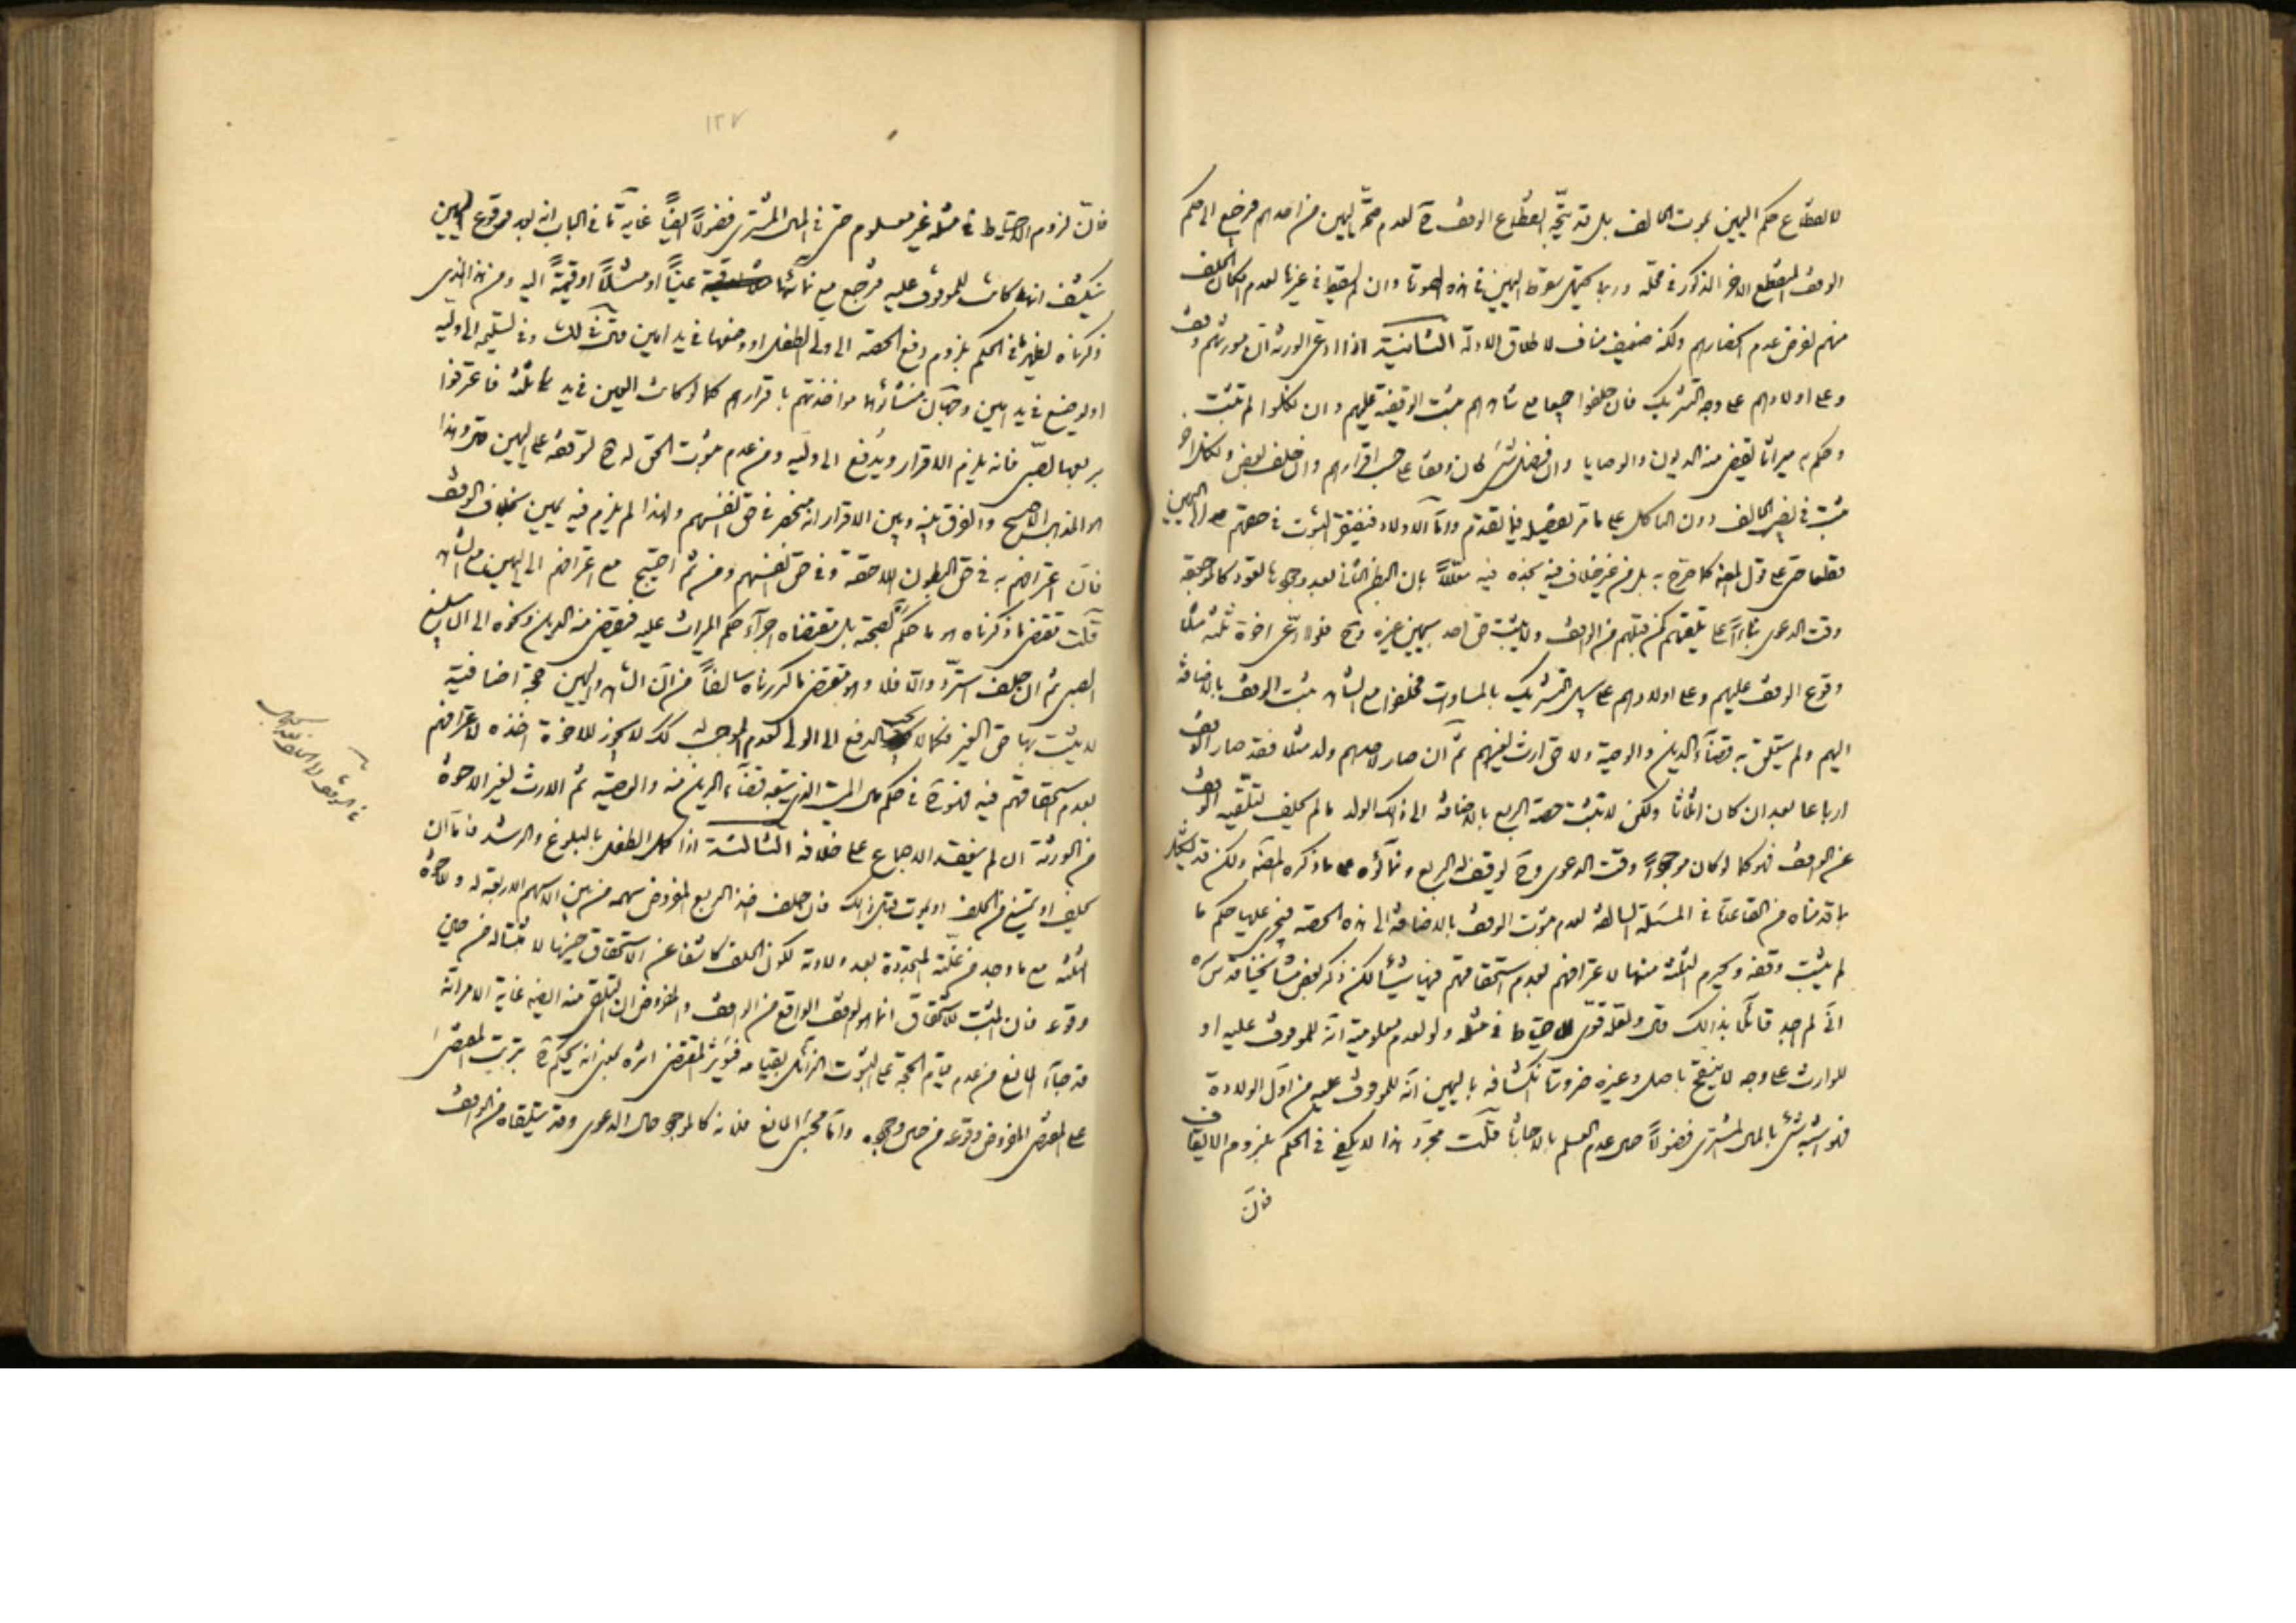 لانقطاع حكم اليمين بموت الحالف بل قد يتجه انقطاع الوقف ح لعدم صحة اليمين من احدهم فيرجع الى حكم
الوقف المنقطع الاخر المذكور في محله وربما يحتمل سقوط اليمين في هذه الصورة وان لم يسقط في غيرها لعدم امكان الحلف
منهم لفرض عدم انحصارهم ولكنه ضعيف مناف لاطلاق الادلة الثانية اذا ادعى الورثة ان مورثهم وقف
وعلى اولادهم على وجه التشريك فان حلفوا جميعا مع شاهدهم ثبت الوقفية عليهم وان نكلوا لم تثبت
وحكم به ميراثا يقضى منه الديون والوصايا وان فضل شئ كان وقفا على حسب اقرارهم وان حلف بعض ونكل اخر
ثبت في نصيب الحالف دون الناكل على ما مر تفصيله فيما تقدم واما الاولاد فيفتقر الثبوت في حقهم الى اليمين
قطعا حتى على قول المصنف كما صرح به بل من غير خلاف فيه نجده فيه معللا بان البطن الثاني بعد وجودها تعود كالموجودة
وقت الدعوى بناء على تلقيهم كمن قبلهم من الواقف ولا يثبت حق احد بيمين غيره وح فلو ادعى اخوة ثلثة مثلا
وقوع الوقف عليهم وعلى اولادهم على سبيل التشريك بالمساوات فحلفوا مع الشاهد ثبت الوقف بالاضافة
اليهم ولم يتعلق به قضاء الدين والوصية ولا حق ارث لغيرهم ثم ان صار لاحدهم ولد مثلا فقد صار الوقف
ارباعا بعد ان كان اثلاثا ولكن لا تثبت حصة الربع بالاضافة الى ذلك الولد ما لم يحلف لتلقيه الوقف
عن الواقف فهو كما لو كان موجودا وقت الدعوى وح يوقف له الربع ونماؤه على ما ذكره المصنف ولكن قد يشكل
بما قدمناه من القاعدة في المسئلة السابقة لعدم ثبوت الوقف بالاضافة الى هذه الحصة فيجري عليها حكم ما
لم يثبت وقفه ويحرم الثلثة منها لاعترافهم بعدم استحقاقهم فيها شيئا لكن ذكر بعض مشايخنا قدس سره
اني لم اجد قائلا بذلك قال ولعله قوى الاحتياط في مثله ولو لعدم معلومية انه للموقوف عليه او
للوارث على وجه لا ينقح باصل وغيره ضرورة انكشافه باليمين انه للموقوف عليه من اول الولادة
فهو اشبه شئ بالمال المشترى فضولا حال عدم العلم بالاجازة قلت مجرد هذا لا يكفي في الحكم بلزوم الايقاف
فان
١٢٧
فان لزوم الاحتياط في مثله غير معلوم حتى في المال المشترى فضولا ايضا غاية ما في الباب انه بعد وقوع اليمين
ينكشف انها كانت للموقوف عليه فترجع مع نمائها عينا او مثلا او قيمة اليه ومن هذا الذي
ذكرناه يظهر في الحكم بلزوم دفع الحصة الى ولي الطفل او وضعها في يد امين وفي تسليمه الى وليه
او يوضع في يد امين وجهان منشائهما مواخذتهم باقرارهم كما لو كانت العين في يد ثلثة فاعترفوا
بربعها لصبي فانه يلزم الاقرار ويدفع الى وليه ومن عدم ثبوت الحق له ح لتوقفه على اليمين وهذا
هو المذهب الاصح والفرق بينه وبين الاقرار انه منحصر في حق انفسهم ولهذا لم يلزم فيه يمين بخلاف الوقف
فان اعترافهم به في حق البطون اللاحقة وفي حق انفسهم ومن ثم احتيج مع اعترافهم الى اليمين مع الشاهد
قلت مقتضى ما ذكرناه هو ما حكم بصحته بل مقتضاه اجراء حكم الميراث عليه فيقضى منه الدين ونحوه الى ان يبلغ
الصبي ثم ان حلف استرد والا فلا وهو مقتضى ما كررناه سالفا من ان الشاهد واليمين حجة اضافية
لا يثبت بها حق الغير فكما لا يجب الدفع الى الولي لعدم الموجب كذلك لا يجوز للاخوة اخذه لاعترافهم
بعدم استحقاقهم فيه فهو ح في حكم مال الميت الذي يتبعه قضاء الدين منه والوصية ثم الارث لغير الاخوة
من الورثة ان لم ينعقد الاجماع على خلافه الثالثة اذا كمل الطفل بالبلوغ والرشد فاما ان
يحلف او يمتنع من الحلف او يموت قبل ذلك فان حلف اخذ الربع المفروض سهمه من بين الاسهم الاربعة له ولاخوة
الثلثة مع ما وجد من غلته المتجددة بعد ولادته لكون الحلف كاشفا عن الاستحقاق حينها لا مثبتا له من حين
وقوعه فان المثبت للاستحقاق انما هو الوقف الواقع من الواقف والمفروض انه تلقى منه العين غاية الامر انه
قد جاء المانع من عدم قيام الحجة على الثبوت الزائل بقيامه فيؤثر المقتضى اثره بمعنى انه يحكم ح بترتب المقتضى
على المقتضى المفروض وقوعه من حين وجوده واما مجئ المانع فلانه كالموجود حال الدعوى وقد يتلقاه من الواقف